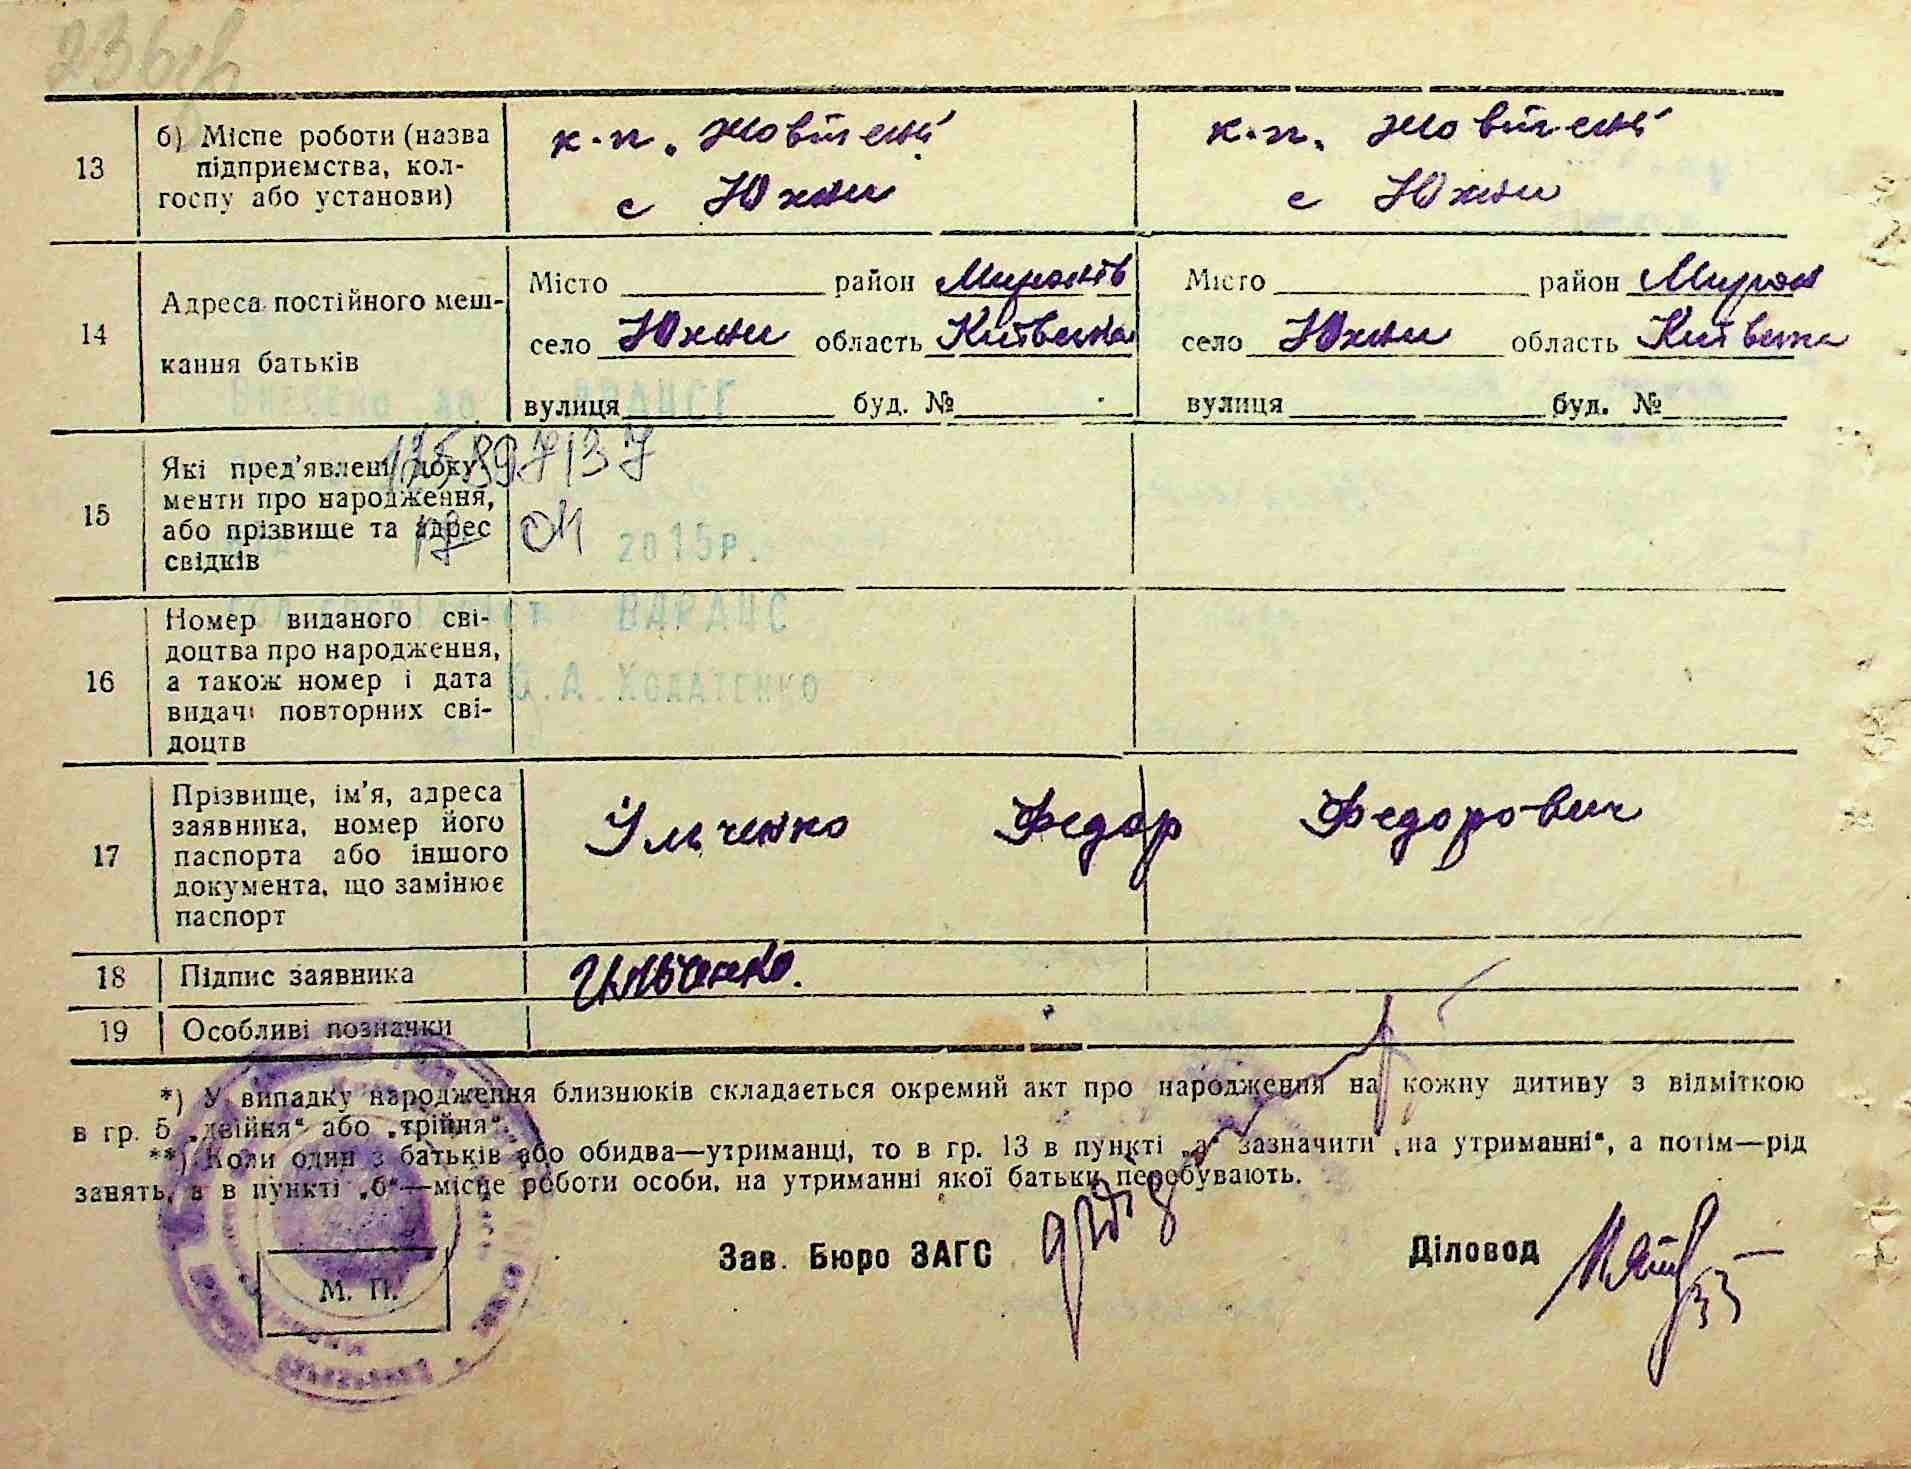 13
б) Місце роботи (назва
підприємства, кол-
госпу або установи)
к-п. Жовтень
с Юхни
к-п. Жовтень
с Юхни
14
Адреса постійного меш-
кання батьків
Місто район Миронів
село Юхни область Київська
вулиця буд. №
Місто район Мирон
село Юхни область Київська
вулиця буд. №
15
Які пред'явлені доку-
менти про народження,
або прізвище та адрес
свідків
2015р.
16
Номер виданого сві-
доцтва про народження,
а також номер і дата
видачі повторних сві-
доцтв
17
Прізвище, ім'я, адреса
заявника, номер його
паспорта або іншого
документа, що замінює
паспорт
Ільченко Федор Федорович
18
Підпис заявника
Ильченко.
19
Особливі позначки
*) У випадку народження близнюків складається окремий акт про народження на кожну дитину з відміткою
в гр. 5 „двійня“ або „трійня“.
**) Коли один з батьків або обидва—утриманці, то в гр. 13 в пункті „а“ зазначити „на утриманні“, а потім—рід
занять, а в пункті „б“—місце роботи особи, на утриманні якої батьки перебувають.
М. П.
Зав. Бюро ЗАГС
Діловод